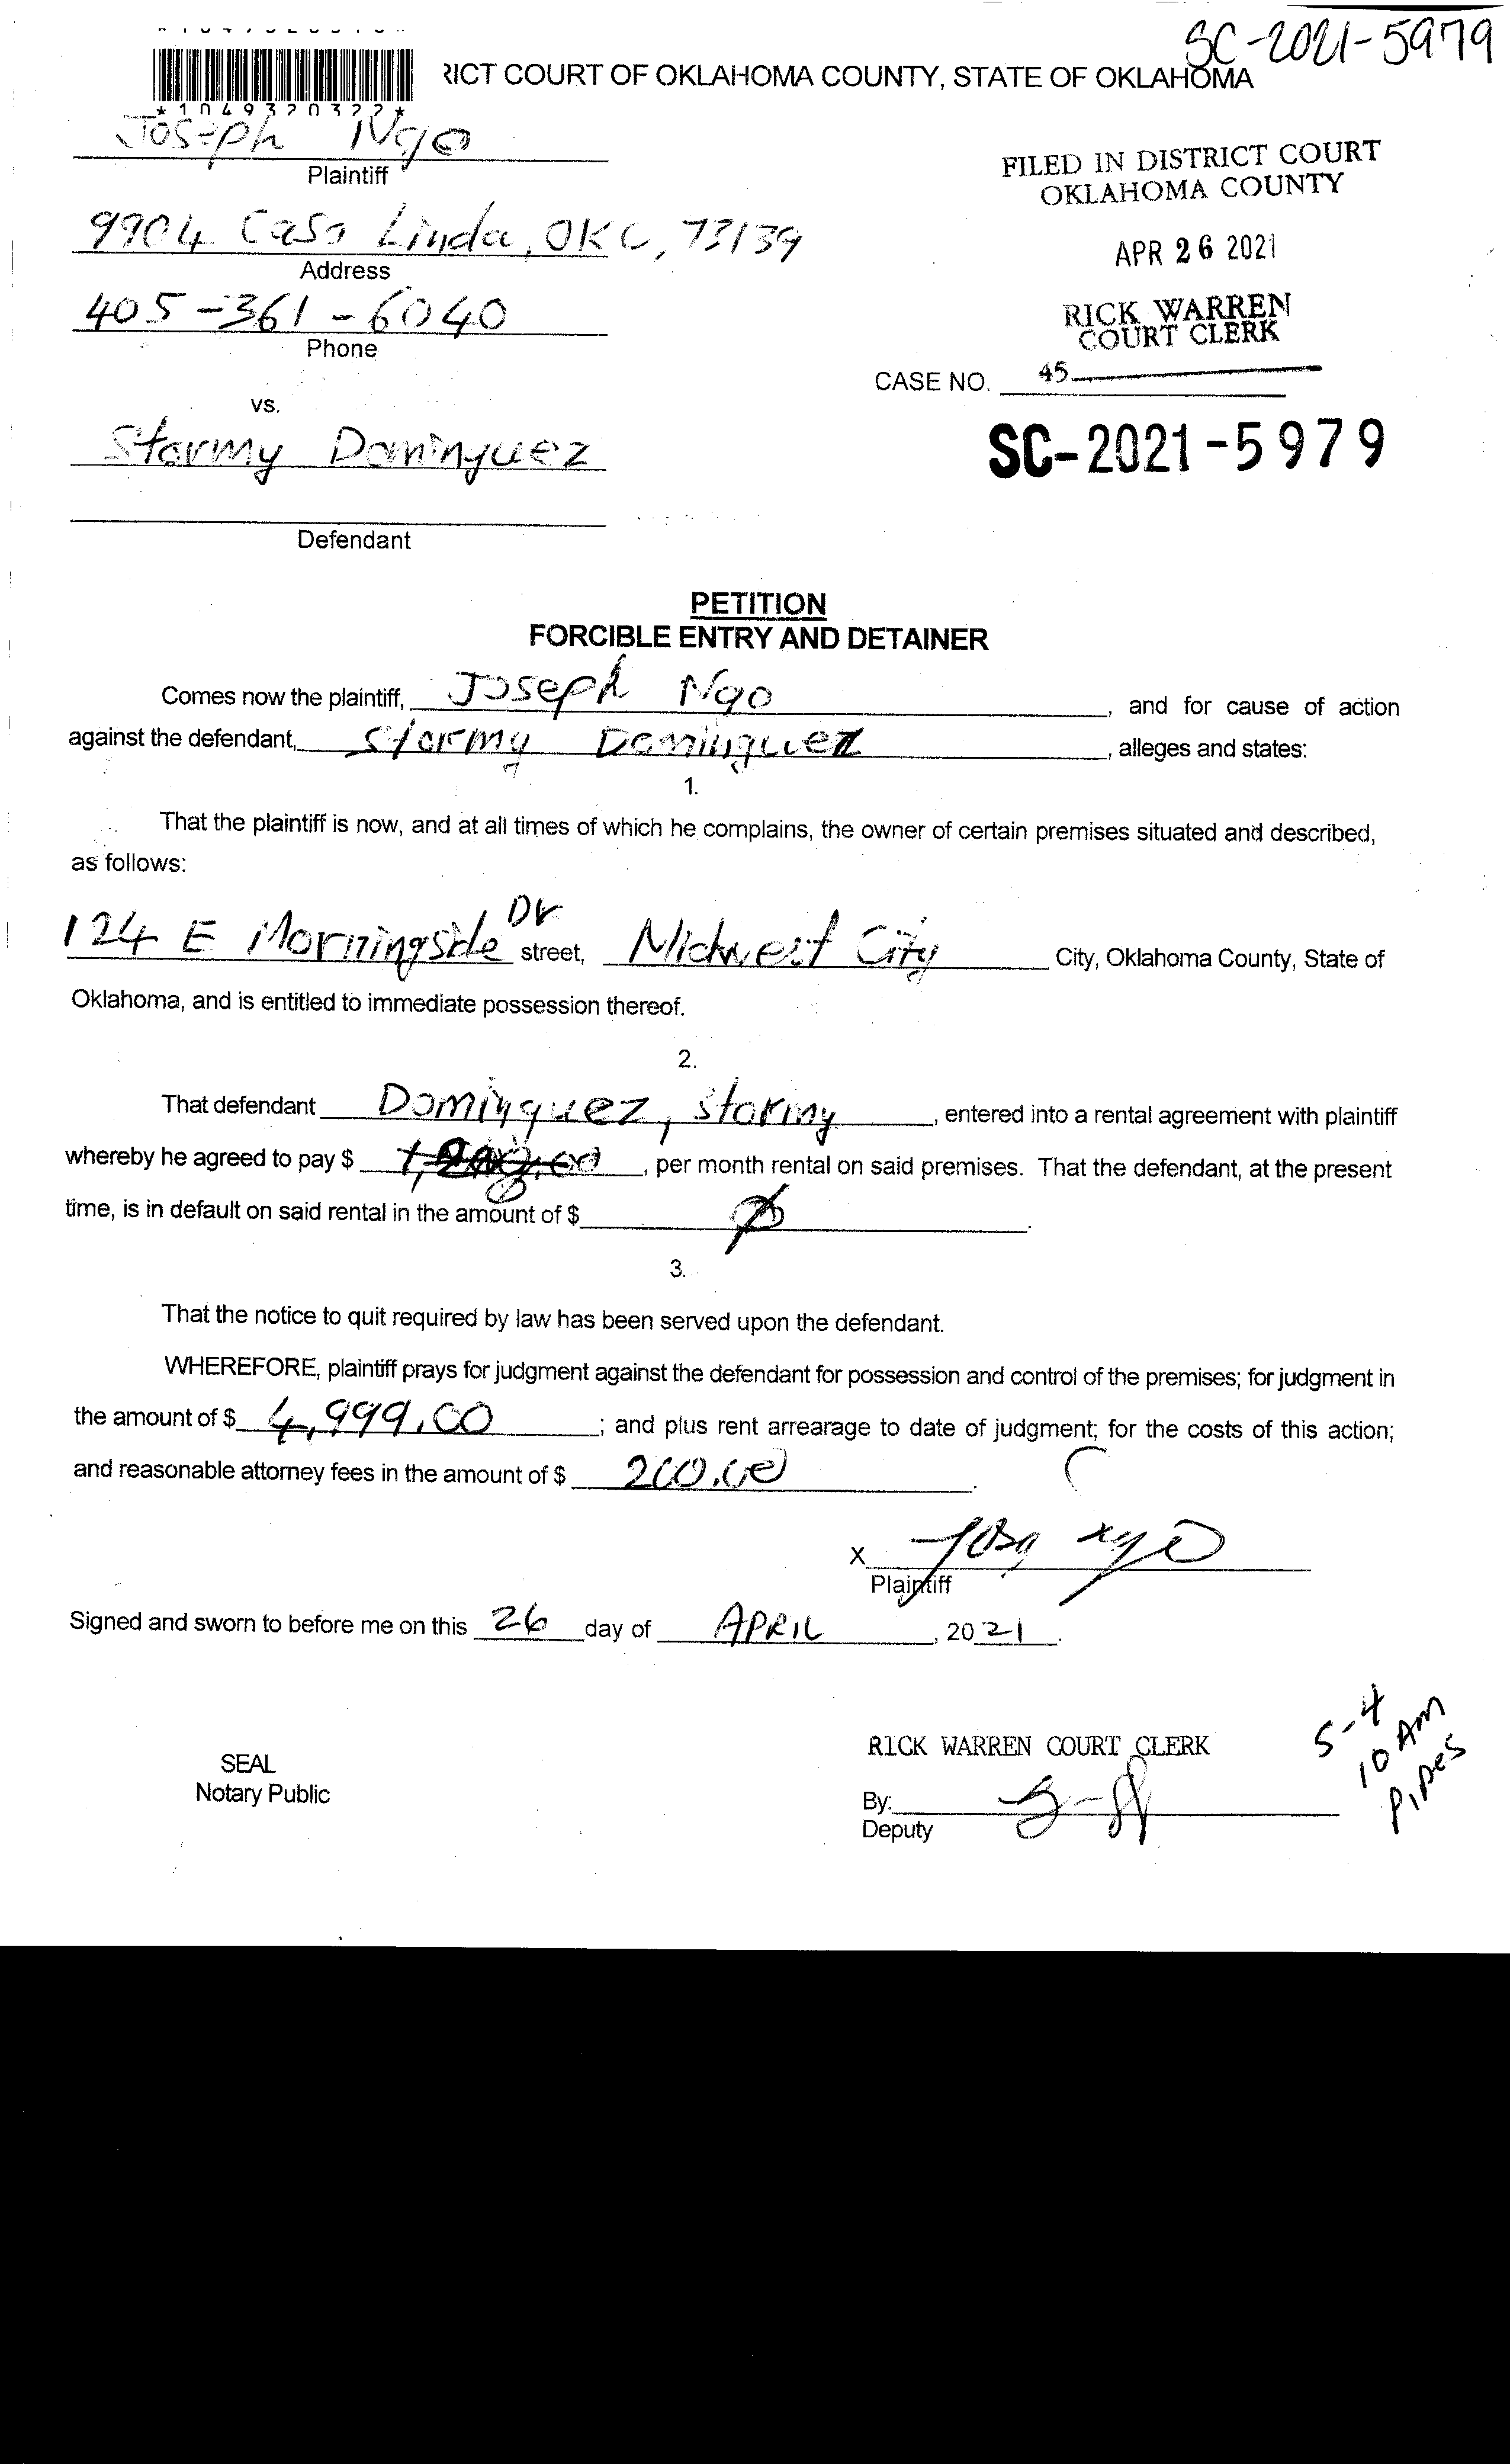 SC-2021-5979
RICT COURT OF OKLAHOMA COUNTY, STATE OF OKLAHOMA
*1049320322*
Joseph Ngo
Plaintiff
FILED IN DISTRICT COURT
OKLAHOMA COUNTY
9904 Casa Linda, OKC, 73139
Address
APR 26 2021
405-361-6040
Phone
RICK WARREN
COURT CLERK
CASE NO.
45
vs.
Stormy Dominguez
SC-2021-5979
Defendant
PETITION
FORCIBLE ENTRY AND DETAINER
Comes now the plaintiff, Joseph Ngo, and for cause of action
against the defendant, Stormy Dominguez, alleges and states:
1.
That the plaintiff is now, and at all times of which he complains, the owner of certain premises situated and described,
as follows:
124 E Morningside Dr street, Midwest City City, Oklahoma County, State of
Oklahoma, and is entitled to immediate possession thereof.
2.
That defendant Dominguez, Stormy, entered into a rental agreement with plaintiff
whereby he agreed to pay $, per month rental on said premises. That the defendant, at the present
time, is in default on said rental in the amount of $.
3.
That the notice to quit required by law has been served upon the defendant.
WHEREFORE, plaintiff prays for judgment against the defendant for possession and control of the premises; for judgment in
the amount of $ 4,999.00; and plus rent arrearage to date of judgment; for the costs of this action;
and reasonable attorney fees in the amount of $ 200.00.
X
Plaintiff
Signed and sworn to before me on this 26 day of APRIL, 20 21.
5-4
10 AM
Pipes
RICK WARREN COURT CLERK
SEAL
Notary Public
By:
Deputy